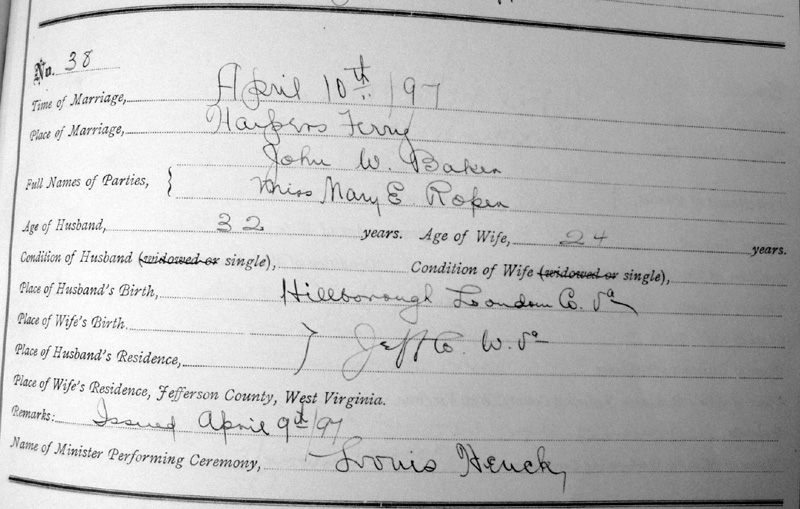 No. 38
Time of Marriage, April 10th /97
Place of Marriage, Harpers Ferry
John W. Baker
Full Names of Parties, } Miss Mary E Roper
Age of Husband, 32 years. Age of Wife, 24 years.
Condition of Husband (widowed or single), Condition of Wife (widowed or single),
Place of Husband's Birth, Hillborough Loudoun Co. Va
Place of Wife's Birth.
Place of Husband's Residence, } Jeff Co. W. Va
Place of Wife's Residence, Jefferson County, West Virginia.
Remarks: Issued April 9th /97
Name of Minister Performing Ceremony, Louis Henck,